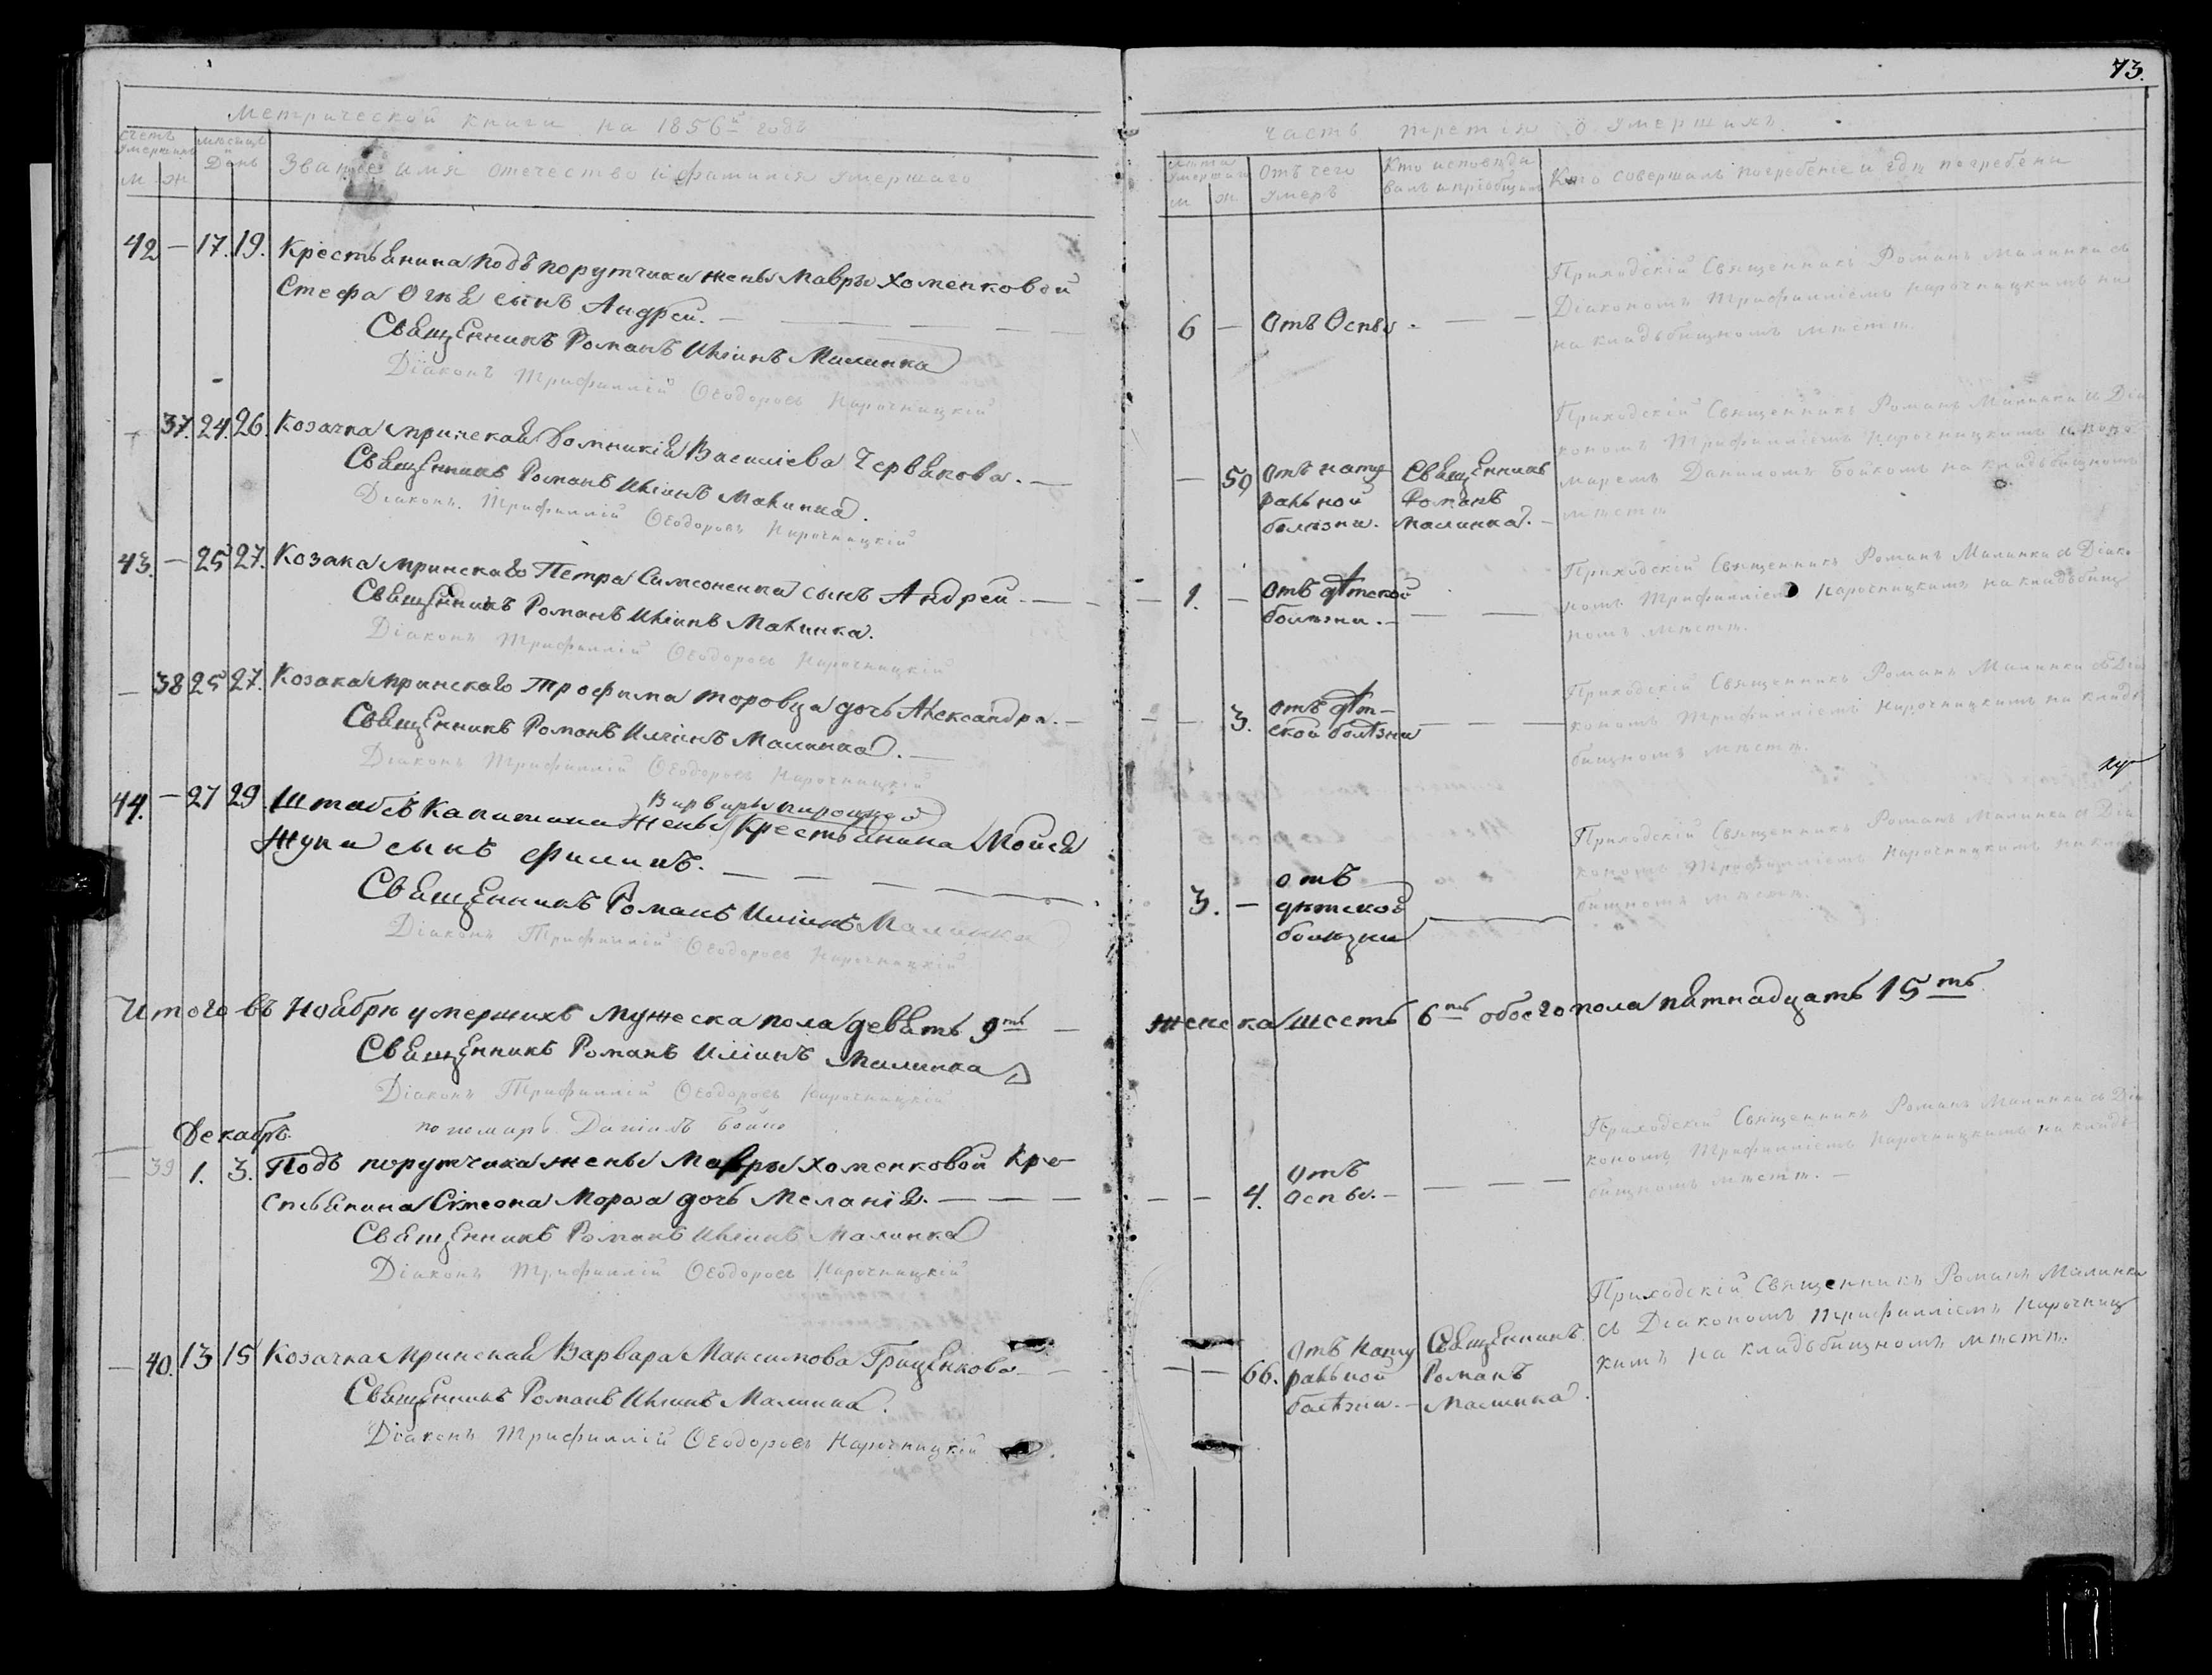 73.
Метрической книги на 1856й годъ
Часть третія о умершихъ
Счетъ умершихъ
М Ж
Мѣсяцъ и День
Званіе имя отечество и фамилія умершаго
Лѣта умершаго
М Ж
Отъ чего умеръ
Кто исповѣдывалъ и пріобщалъ
Кто совершалъ погребеніе и гдѣ погребены
42 — 17. 19. Крестьянина Подъ порутчики жены Мавры Хоменковой
Стефа Огня сынъ Андрей. —
Священникъ Романъ Иліинъ Малинка
Діаконъ Трифиллій Ѳеодоровъ Нарочницкій
6 — Отъ Оспы. — — —
Приходскій Священникъ Романъ Малинка съ
Діакономъ Трифилліемъ Нарочницкимъ на
на кладьбищномъ мѣстѣ.
— 37. 24. 26. Козачка мринская Домникія Василіева Червякова. —
Священникъ Романъ Иліинъ Малинка.
Діаконъ Трифиллій Ѳеодоровъ Нарочницкій
— 59 Отъ нату
ральной
болѣзни.
Священникъ
Романъ
Малинка. —
Приходскій Священникъ Романъ Малинка съ Діа
кономъ Трифилліемъ Нарочницкимъ и поно
маремъ Даниломъ Бойкомъ на кладьбищномъ
мѣстѣ
43. — 25 27. Козака мринскаго Петра Симоненка сынъ Андрей. —
Священникъ Романъ Иліинъ Малинка.
Діаконъ Трифиллій Ѳеодоровъ Нарочницкій
1. — Отъ дѣтской
болѣзни. — — —
Приходскій Священникъ Романъ Малинка съ Діако
номъ Трифилліемъ Нарочницкимъ на кладьбищ
номъ мѣстѣ.
— 38 25 27. Козака мринскаго Трофима Торовца дочь Александра. —
Священникъ Романъ Иліинъ Малинка. —
Діаконъ Трифиллій Ѳеодоровъ Нарочницкій
— 3. Отъ дѣт-
ской болѣзни — — —
Приходскій Священникъ Романъ Малинка съ Діа
кономъ Трифилліемъ Нарочницкимъ на кладь
бищномъ мѣстѣ.
Варвары
44. — 27 29 Штабсъ Капитана Жены Крестьянина Мойсея
Жупа сынъ Филипъ. —
Священникъ Романъ Иліинъ Малинка
Діаконъ Трифиллій Ѳеодоровъ Нарочницкій
3. — Отъ
дѣтской
болѣзни
Приходскій Священникъ Романъ Малинка съ Діа
кономъ Трифилліемъ Нарочницкимъ на кладь
бищномъ мѣстѣ.
Итого въ Ноябрѣ умершихъ мужеска пола девять 9ть —
женска шесть 6ть обоего пола пятнадцать 15ть
Священникъ Романъ Иліинъ Малинка
Діаконъ Трифиллій Ѳеодоровъ Нарочницкій
пономарь Даніилъ Бойко
Декабрь
— 39 1. 3. Подъ порутчика жены Мавры Хоменковой Кре-
стьянина Симеона Мороза дочь Меланія. — — —
Священникъ Романъ Иліинъ Малинка
Діаконъ Трифиллій Ѳеодоровъ Нарочницкій
— — 4. Отъ
оспы. — — — —
Приходскій Священникъ Романъ Малинка съ Діа
кономъ Трифилліемъ Нарочницкимъ на кладь
бищномъ мѣстѣ. —
— 40. 13 15 Козачка мринская Варвара Максимова Грищенкова —
Священникъ Романъ Иліинъ Малинка.
Діаконъ Трифиллій Ѳеодоровъ Нарочницкій
— — 66. Отъ нату
ральной
болѣзни. —
Священникъ
Романъ
Малинка.
Приходскій Священникъ Романъ Малинка
съ Діакономъ Трифилліемъ Нарочниц
кимъ на кладьбищномъ мѣстѣ.